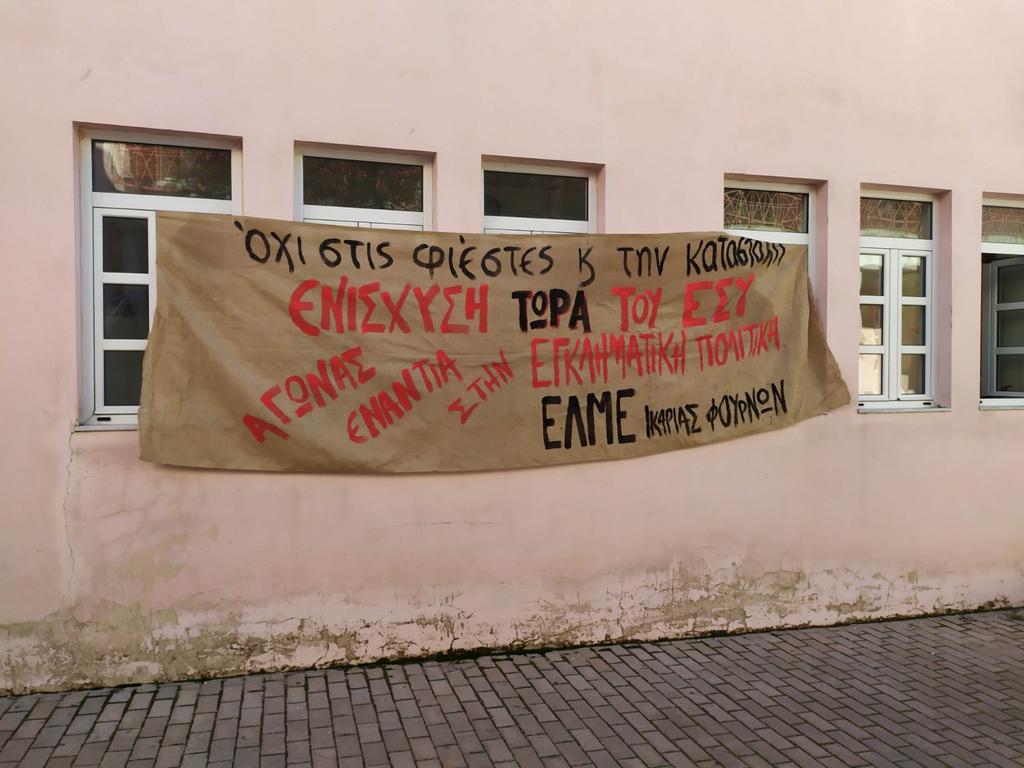 Όχι στις φιέστες κ την καταστολή
ΕΝΙΣΧΥΣΗ ΤΩΡΑ ΤΟΥ ΕΣΥ
ΑΓΩΝΑΣ ΕΝΑΝΤΙΑ ΣΤΗΝ ΕΓΚΛΗΜΑΤΙΚΗ ΠΟΛΙΤΙΚΗ
ΕΛΜΕ ΙΚΑΡΙΑΣ ΦΟΥΡΝΩΝ